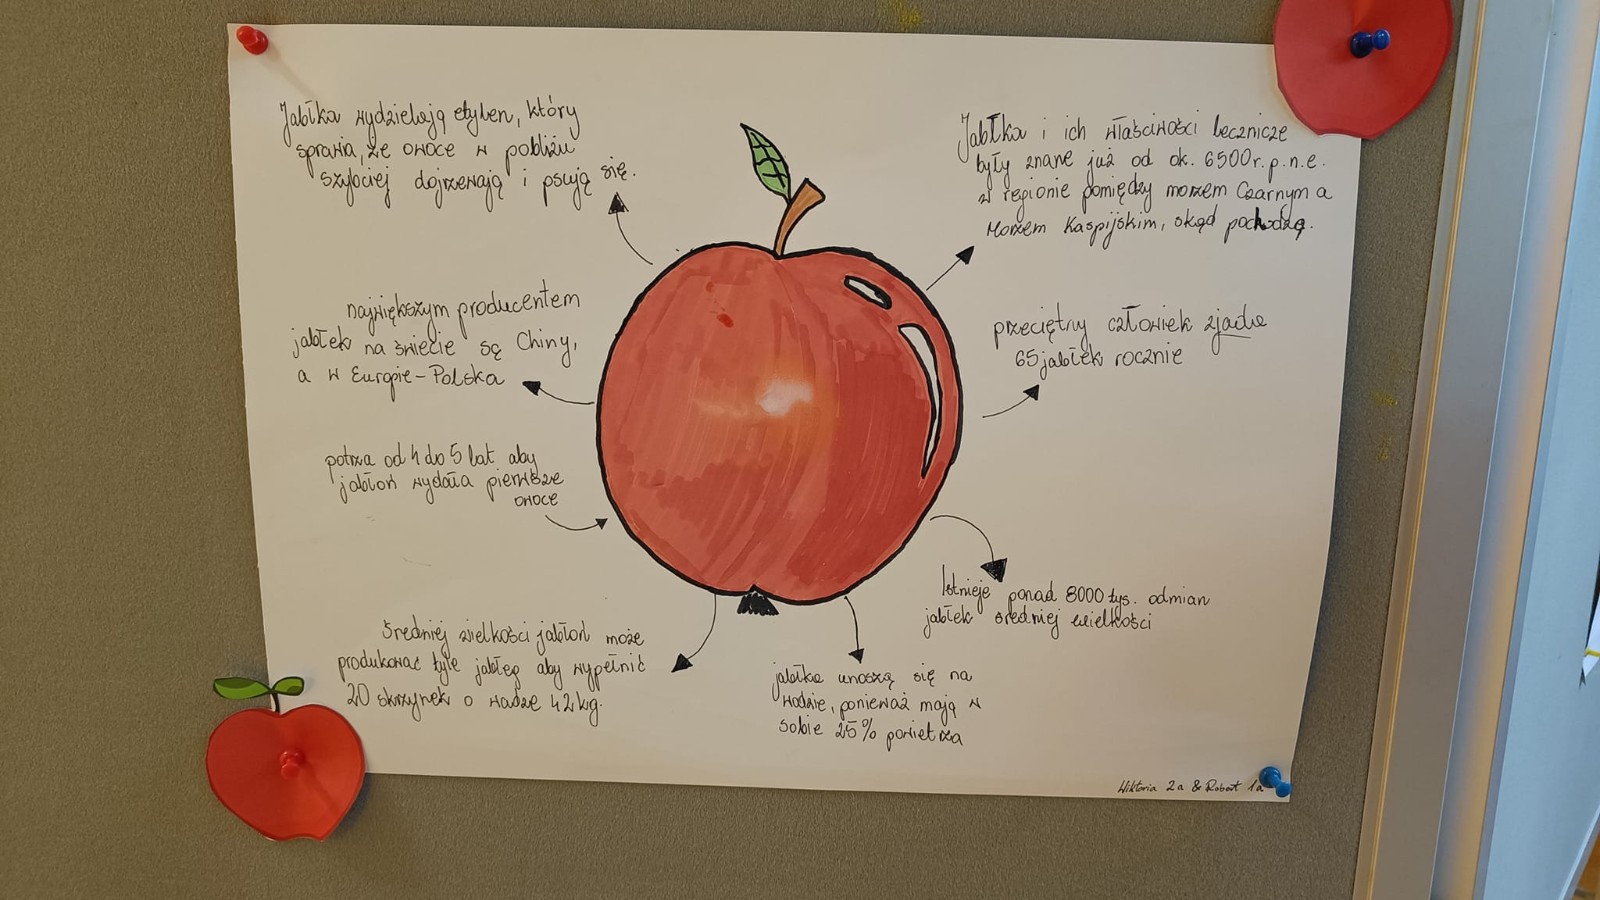 Jabłka wydzielają etylen, który
sprawia, że owoce w pobliżu
szybciej dojrzewają i psują się.
największym producentem
jabłek na świecie są Chiny,
a w Europie - Polska
potrza od 4 do 5 lat aby
jabłoń wydała pierwsze
owoce
Średniej wielkości jabłoń może
produkować tyle jabłeg aby wypełnić
20 skrzynek o wadze 42kg.
Jabłka i ich właściwości lecznicze
były znane już od ok. 6500r.p.n.e.
w regionie pomiędzy morzem Czarnym a
Morzem Kaspijskim, skąd pochodzą.
przeciętny człowiek zjada
65 jabłek rocznie
Istnieje ponad 8000 tys. odmian
jabłek średniej wielkości
jabłka unoszą się na
wodzie, ponieważ mają w
sobie 25% powietrza
Wiktoria 2a & Robert 1a